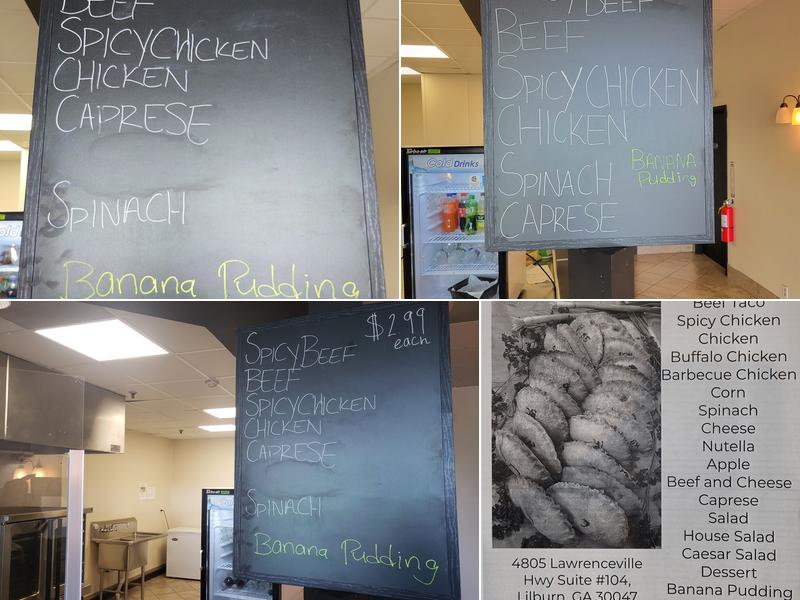 BEEF
SPICYCHICKEN
CHICKEN
CAIPRESE
SPINACH
Banana Pudding
BEEF
BEEF
SPICY CHICKEN
CHICKEN
SPINACH
BANANA
Pudding
CAPRESE
Turbo air
Cold Drinks
$2.99
each
SPICYBEEF
BEEF
SPICYCHICKEN
CHICKEN
CAPRESE
SPINACH
Banana Pudding
Beef Taco
Spicy Chicken
Chicken
Buffalo Chicken
Barbecue Chicken
Corn
Spinach
Cheese
Nutella
Apple
Beef and Cheese
Caprese
Salad
House Salad
Caesar Salad
Dessert
Banana Pudding
4805 Lawrenceville
Hwy Suite #104,
Lilburn, GA 30047